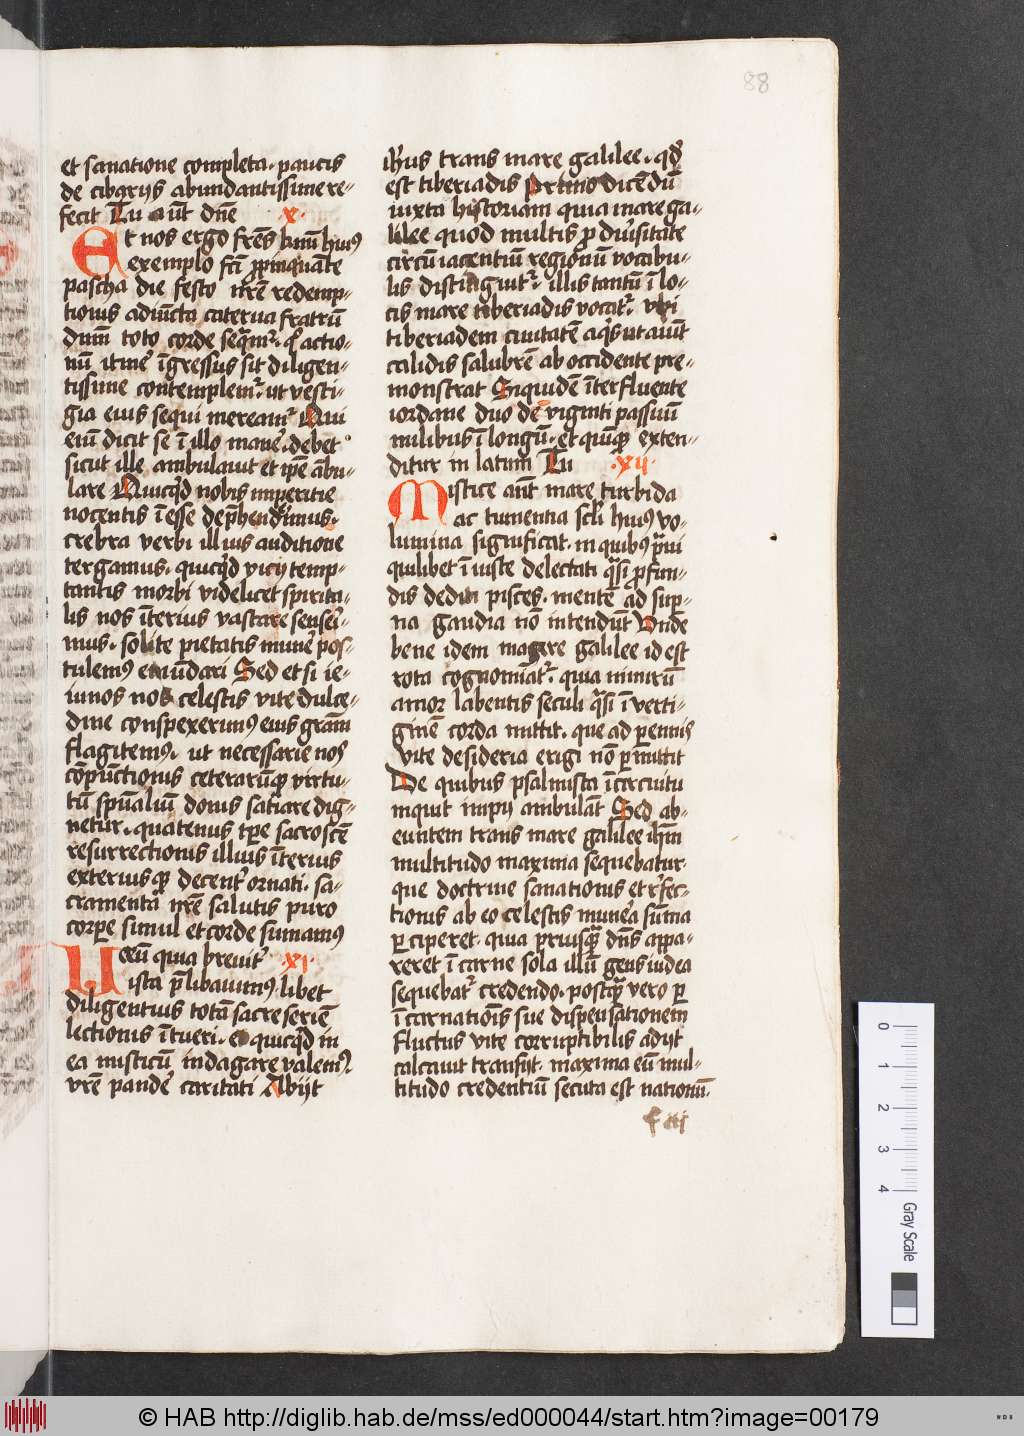 88
et sanatione completa. paucis
de cibarijs abundantissime re-
fecit Tu aūt dn̄e .x.
Et nos ergo fr̄es kmī huiꝰ
exemplo fc̄i ꝓpinquāte
pascha die festo nr̄e redemp-
tionis adiūcta caterua fratrū
dnm̄ toto corde seqͣmꝛ. qͥ actio-
nū itineꝭ īgressus sit diligen-
tissime contemplemꝛ. ut vesti-
gia eius sequi mereamꝛ Qui
enī dicit se ī illo maneꝭ. debet
sicut ille ambulauit et ip̄e ābu-
lare Quicqͥd nobis imperitie
nocentis īesse dep̄hendꝭimus.
crebra verbi illius auditione
tergamus. quicqͥd vicij temp-
tantis morbi videlicet spirita-
lis nos īterius vastare senseꝭi-
mus. solite pietatis muneꝭ pos-
tulemꝰ emūdari Sed et si ie-
iunos nos celestis vite dulce-
dine conspexerimꝰ eius grām
flagitemꝰ. ut necessarie nos
cōpūctionis ceterarūqꝫ virtu-
tū spūaliū donis satiare dig-
netur. quatenus tpe sacroscē
resurrectionis illius īterius
exteriusqꝫ decentꝭ ornati. sa-
cramenta nr̄e salutis puro
corpe simul et corde sumamꝰ
Uerū quia breuitꝭ .xi.
ista p̄libauimꝰ. libet
diligentius totā sacre seriē
lectionis ītueri. et quicqͥd in
ea misticū indagare valemꝰ.
vr̄e pandeꝭ caritati Abijt
ih̄us trans mare galilee. qd̄
est tiberiadis Primo dicēdū
iuxta historiam quia mare ga-
lilee quod multis ꝓ diuꝭsitate
circū iacentiū regionū vocabu-
lis distinguitꝛ. illis tantū ī lo-
cis mare tiberiadis vocatꝛ. vbi
tiberiadem ciuitatē aqͥs ut aiūt
calidis salubrē ab occidente pre-
monstrat Siquidē īter fluente
iordane duo de viginti passuū
milibus ī longū. et quīqꝫ exten-
ditur in latum Tu .xij.
Mistice aūt mare turbida
ac tumentia scl̄i huiꝰ vo-
lumina significat. in quibus p̄ui
quilibet īiuste delectati qͣsi ꝓfun-
dis dediti pisces. mentē ad supꝭ-
na gaudia nō intendūt Vnde
bene idem magre galilee id est
rota cognomiatꝛ. quia nimirū
amor labentis seculi qͣsi ī verti-
ginē corda mittit. que ad ꝑennis
vite desideria erigi nō ꝑmittit
De quibus psalmista īcircuitu
inquit impij ambulāt Sed ab-
euntem trans mare galilee ih̄m
multitudo maxima sequebatur.
que doctrine sanationis et rꝭfec-
tionis ab eo celestis munera sūma
ꝑciperet. quia priusqͣꝫ dn̄s appa-
reret ī carne sola illū gens iudea
sequebatꝛ credendo. postqͣꝫ vero ꝑ
īcarnationis sue dispensationem
fluctus vite corruptibilis adijt
calcauit transijt. maxima eū mul-
titudo credentiū secuta est nationū.
f iij
0
1
2
3
4
Gray Scale
© HAB http://diglib.hab.de/mss/ed000044/start.htm?image=00179